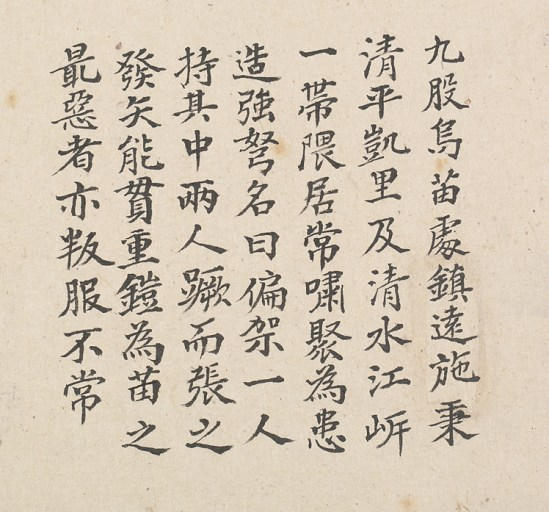 九股烏苗處鎮遠施秉
清平凱里及清水江岍
一帶隈居常嘯聚為患
造強弩名曰偏架一人
持其中兩人蹶而張之
發矢能貫重鎧為苗之
最惡者亦叛服不常